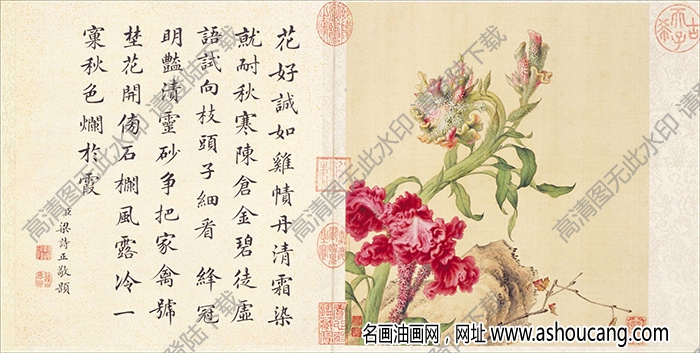 花好誠如雞幘丹清霜染
就耐秋寒陳倉金碧徒虛
語試向枝頭子細看 絳冠
明豔漬靈砂爭把家禽號
埜花開傍石欄風露冷一
窠秋色爛於霞
臣梁詩正敬題
古希天子
高清图无此水印 请登陆下载
高清图无此水印 请登陆下载
高清图无此水印 请登陆下载
名画油画网，网址 www.ashoucang.com